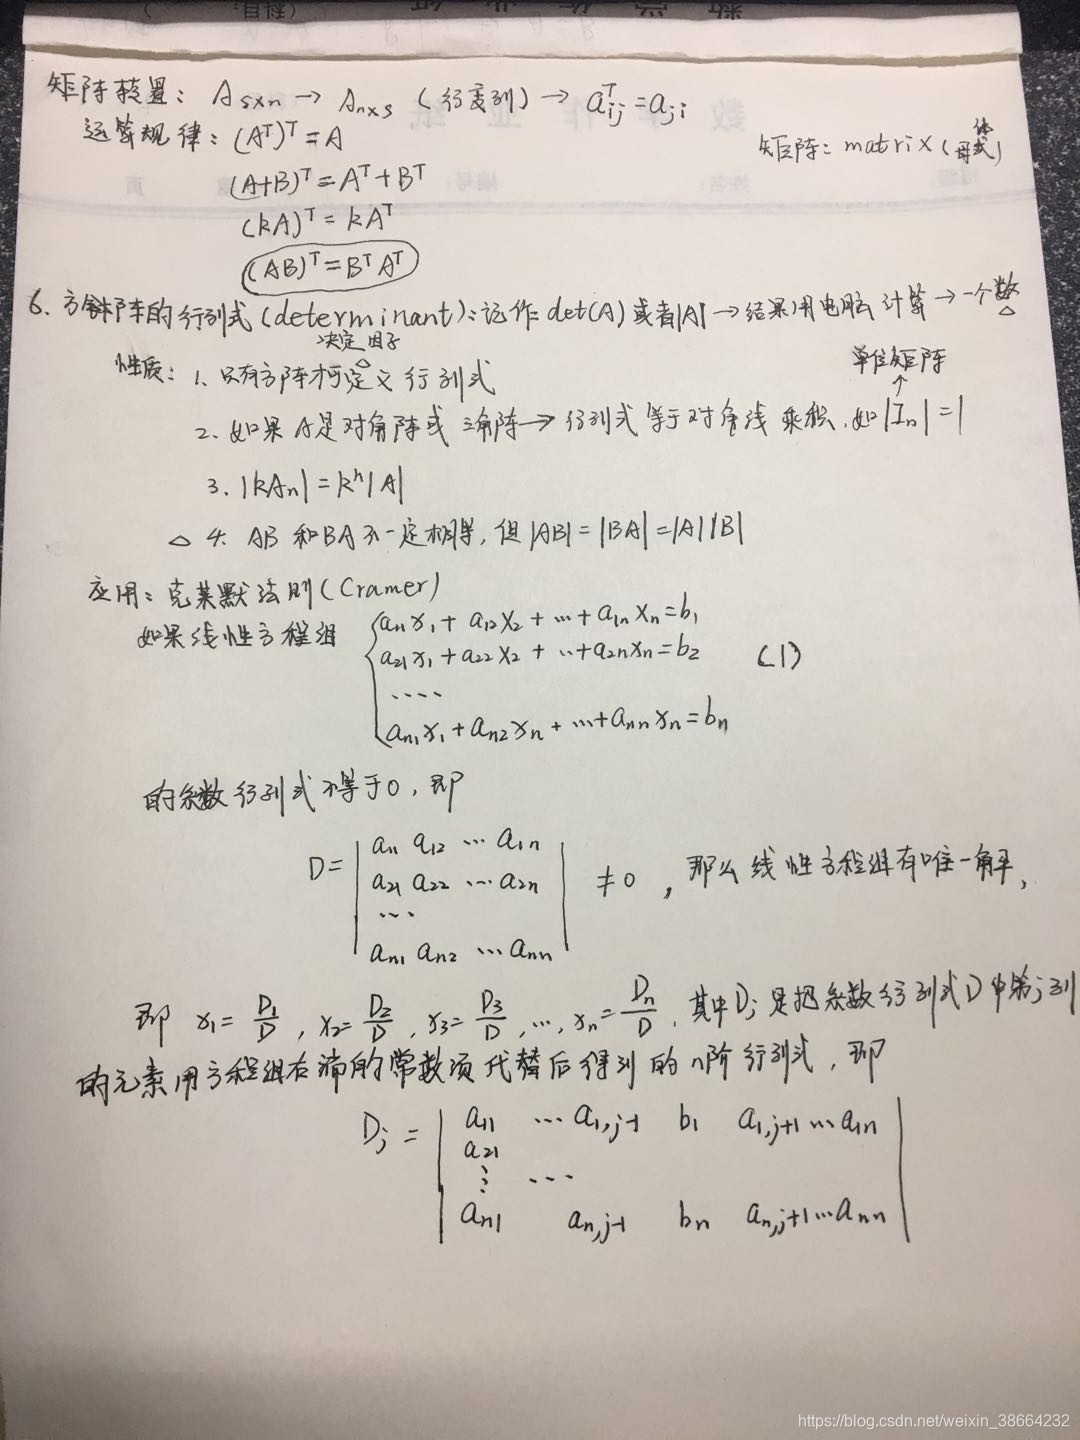 新 学 作 业 纸 (科目:
数 学 作 业 纸
班级: 姓名: 编号: 第 页
矩阵转置: A_{s×n} → A_{n×s} (行变列) → a^T_{ij} = a_{ji}
运算规律: (A^T)^T = A
矩阵: matrix (母体式)
(A+B)^T = A^T + B^T
(kA)^T = kA^T
(AB)^T = B^T A^T
6. 方阵的行列式 (determinant): 记作 det(A) 或者|A| → 结果用电脑计算 → 一个数
决定因子
性质: 1. 只有方阵才可定义行列式
单位矩阵
2. 如果A是对角阵或三角阵 → 行列式等于对角线乘积, 如|I_n| = 1
3. |kA_n| = k^n |A|
△ 4. AB 和BA不一定相等, 但 |AB| = |BA| = |A||B|
应用: 克莱默法则 (Cramer)
如果线性方程组 { a_{11}x_1 + a_{12}x_2 + ··· + a_{1n}x_n = b_1
a_{21}x_1 + a_{22}x_2 + ··· + a_{2n}x_n = b_2 (1)
····
a_{n1}x_1 + a_{n2}x_n + ··· + a_{nn}x_n = b_n
的系数行列式不等于0, 即
D = | a_{11} a_{12} ··· a_{1n} |
| a_{21} a_{22} ··· a_{2n} | ≠ 0, 那么线性方程组有唯一解,
···
| a_{n1} a_{n2} ··· a_{nn} |
即 x_1 = D_1/D, x_2 = D_2/D, x_3 = D_3/D, ···, x_n = D_n/D, 其中D_j是把系数行列式D中第j列
的元素用方程组右端的常数项代替后得到的n阶行列式, 即
D_j = | a_{11} ··· a_{1,j-1} b_1 a_{1,j+1} ··· a_{1n} |
a_{21}
⋮ ···
| a_{n1} a_{n,j-1} b_n a_{n,j+1} ··· a_{nn} |
https://blog.csdn.net/weixin_38664232